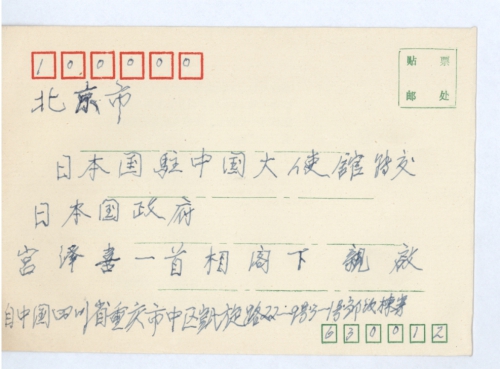 100000
贴票
邮处
北京市
日本国駐中国大使館转交
日本国政府
宮澤喜一首相阁下 親啟
自中国四川省重庆市中区凱旋路22-9号3-1号
630012